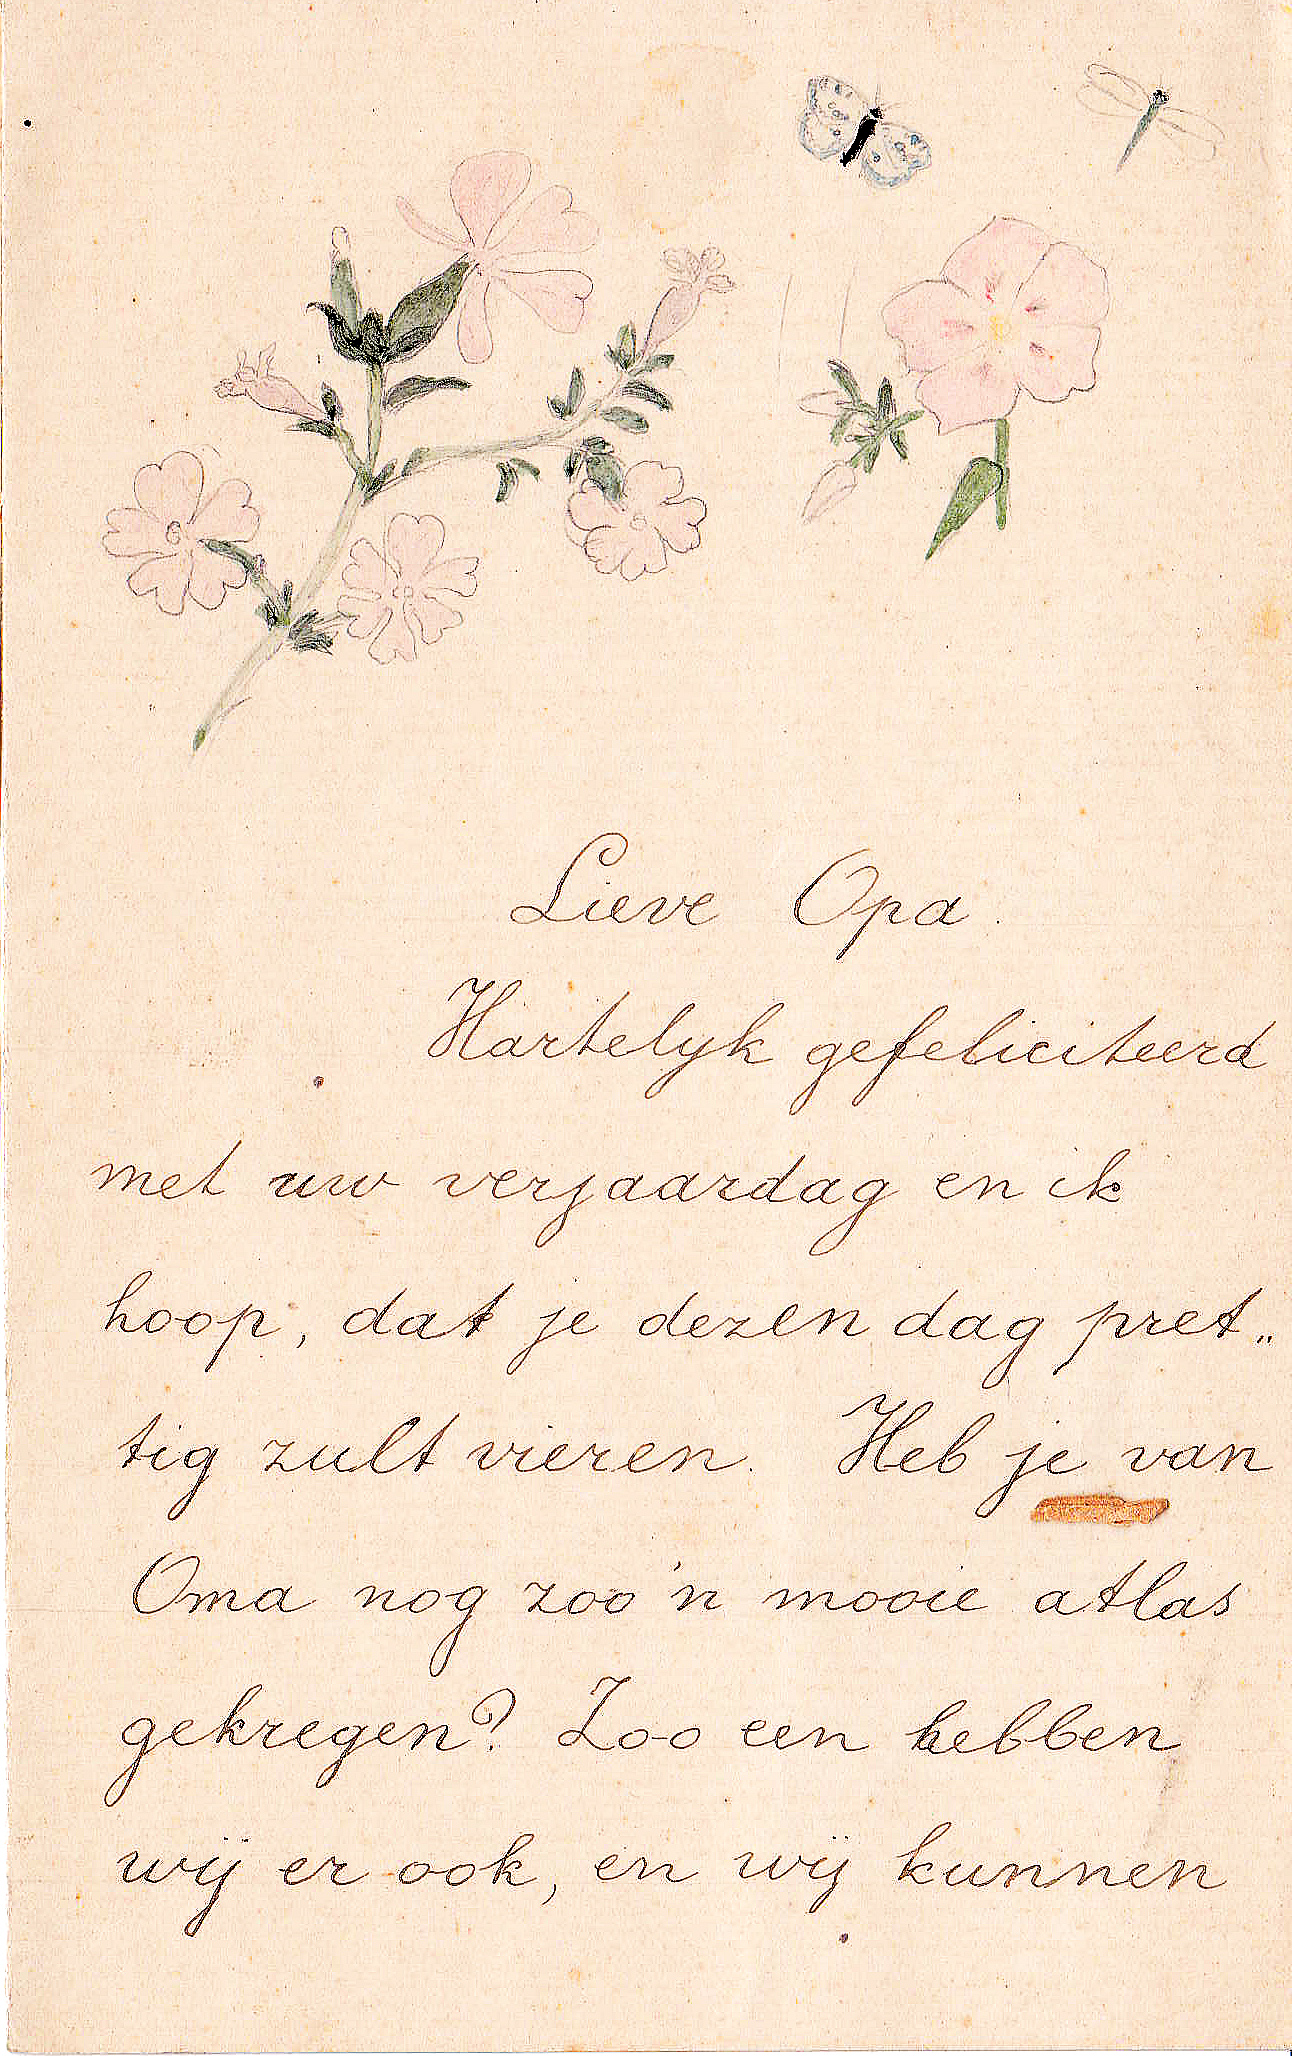 Lieve Opa.
Hartelyk gefeliciteerd
met uw verjaardag en ik
hoop, dat je dezen dag pret„
tig zult vieren. Heb je van
Oma nog zoo'n mooie atlas
gekregen? Zoo een hebben
wij er ook, en wij kunnen